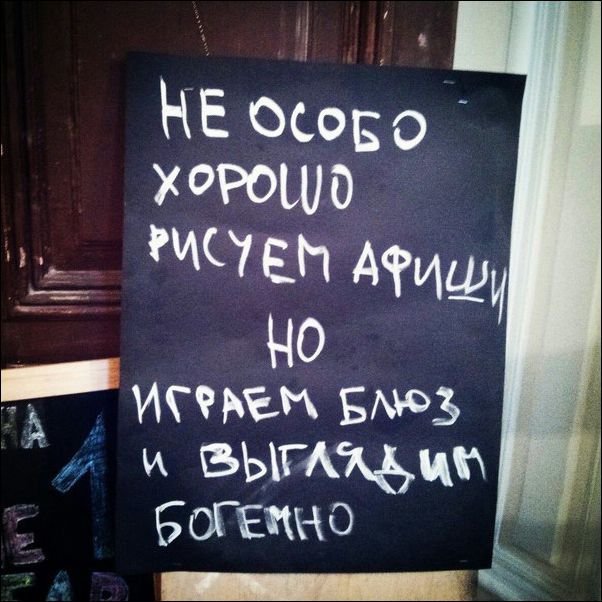 НЕ ОСОБО
ХОРОШО
РИСУЕМ АФИШИ
НО
ИГРАЕМ БЛЮЗ
И ВЫГЛЯДИМ
БОГЕМНО
НА
1
Е